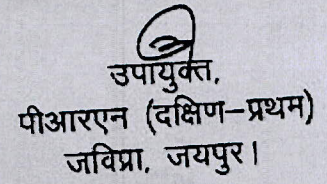 उपायुक्त,
पीआरएन (दक्षिण–प्रथम)
जविप्रा, जयपुर।